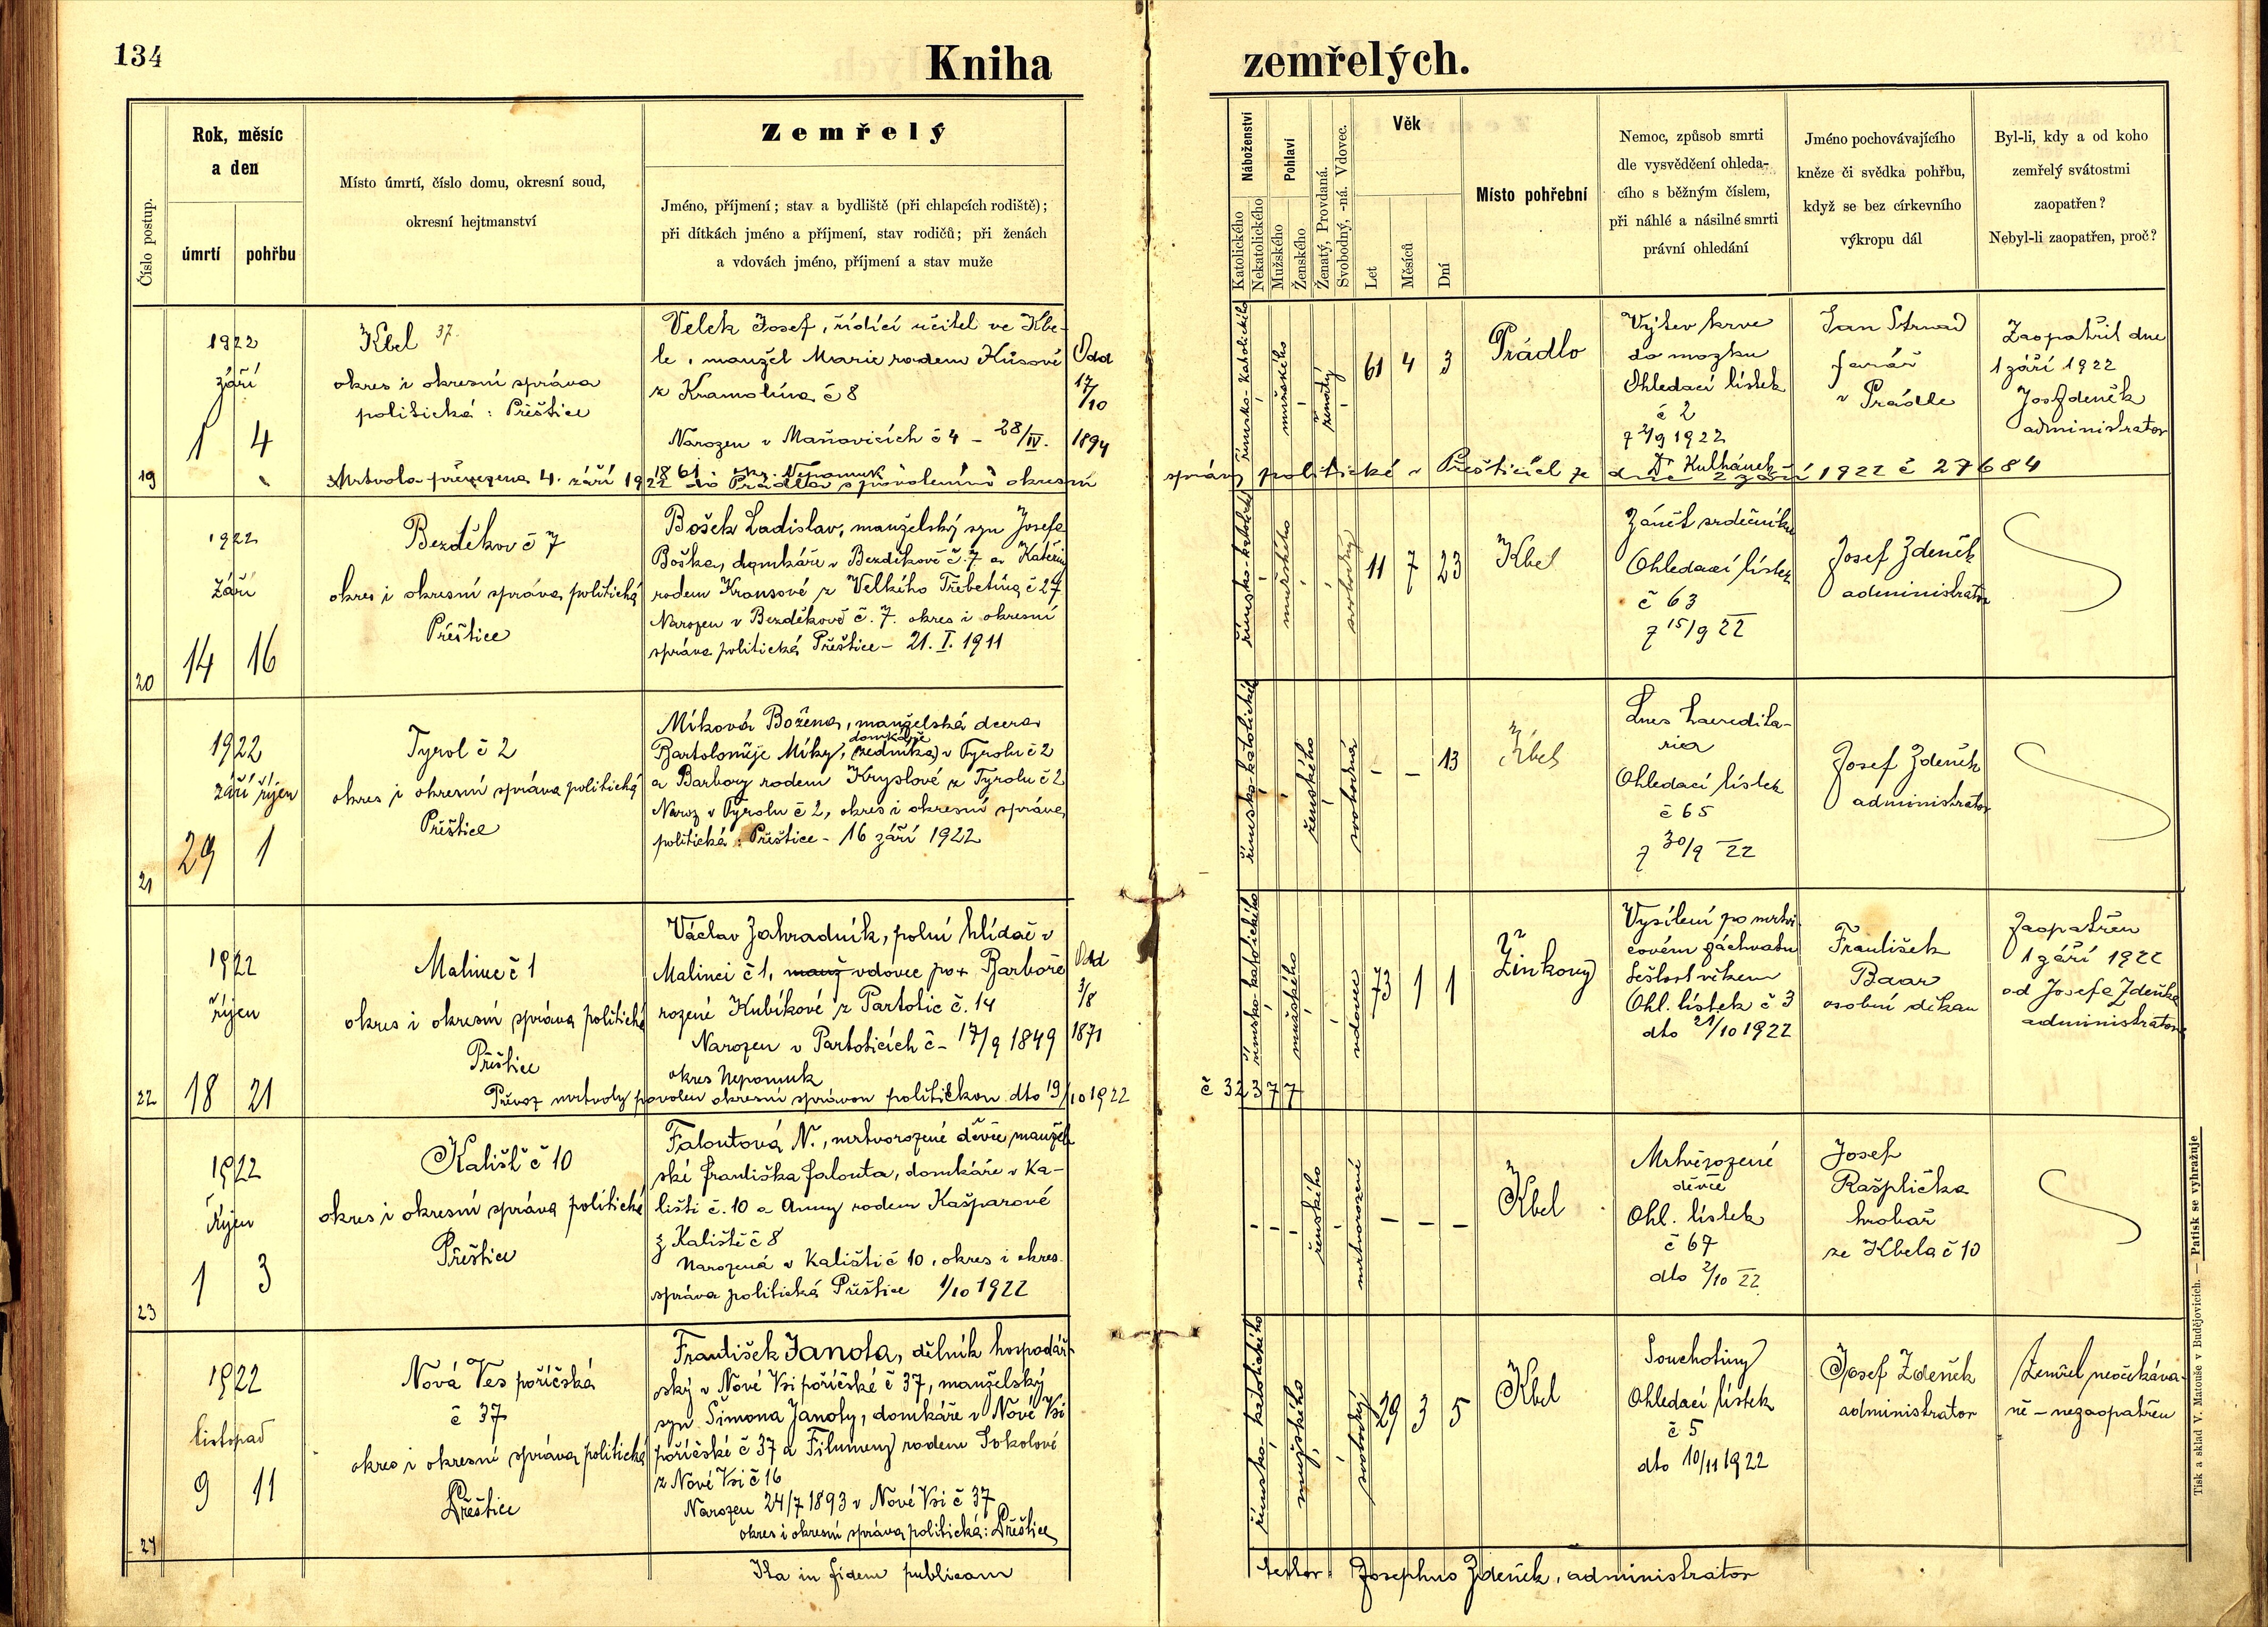 134
Kniha
zemřelých.
Číslo postup.
Rok, měsíc
a den
úmrtí
pohřbu
Místo úmrtí, číslo domu, okresní soud,
okresní hejtmanství
Zemřelý
Jméno, příjmení; stav a bydliště (při chlapcích rodiště);
při dítkách jméno a příjmení, stav rodičů; při ženách
a vdovách jméno, příjmení a stav muže
Náboženství
Katolického
Nekatolického
Pohlaví
Mužského
Ženského
Ženatý, Provdaná.
Svobodný, -ná. Vdovec.
Věk
Let
Měsíců
Dní
Místo pohřební
Nemoc, způsob smrti
dle vysvědčení ohleda-
cího s běžným číslem,
při náhlé a násilné smrti
právní ohledání
Jméno pochovávajícího
kněze či svědka pohřbu,
když se bez církevního
výkropu dál
Byl-li, kdy a od koho
zemřelý svátostmi
zaopatřen?
Nebyl-li zaopatřen, proč?
19
1922
září
1 4
Kbel 37.
okres i okresní správa
politická: Přeštice
Velek Josef, řídící učitel ve Kbe-
le, manžel Marie rodem Kůsové
z Kramolína č 8
Narozen v Maňovicích č 4 - 28/IV.
1861. okr. Nepomuk
Odd
17/10
1894
Mrtvola převezena 4. září 1922 do Prádla s povolením okresní
správy politické v Přešticích ze dne 2 září 1922 č 27684
římsko-katolického
mužského
ženatý
61 4 3
Prádlo
Výlev krve
do mozku
Ohledací lístek
č 2
z 2/9 1922
Dr Kulhánek
Jan Strnad
farář
v Prádle
Zaopatřil dne
1 září 1922
Jos Zdeněk
administrator
20
1922
Září
14 16
Bezděkov č 7
okres i okresní správa politická
Přeštice
Bošek Ladislav, manželský syn Josefa
Boška, domkáře v Bezděkově č. 7 a Kateřiny
rodem Krausové z Velkého Třebetína č 27
Narozen v Bezděkově č. 7. okres i okresní
správa politická Přeštice - 21. I. 1911
římsko-katolického
mužského
svobodný
11 7 23
Kbel
Zánět srdečníku
Ohledací lístek
č 63
z 15/9 22
Josef Zdeněk
administrator
21
1922
září říjen
29 1
Tyrol č 2
okres i okresní správa politická
Přeštice
Míková Božena, manželská dcera
domkáře
Bartoloměje Míky, (zedníka) v Tyrolu č 2
a Barbory rodem Kryslové z Tyrolu č 2
Naroz v Tyrolu č 2, okres i okresní správa
politická: Přeštice - 16 září 1922
římsko-katolického
ženského
svobodná
- - 13
Kbel
Lues haeredita-
ria
Ohledací lístek
č 65
z 30/9 22
Josef Zdeněk
administrator
22
1922
říjen
18 21
Malinec č 1
okres i okresní správa politická
Přeštice
Václav Zahradník, polní hlídač v
Malinci č 1, manž vdovec po + Barboře
rozené Kubíkové z Partolic č. 14
Narozen v Partoticích č - 17/9 1849
okres Nepomuk
Odd
3/8
1871
Převoz mrtvoly povolen okresní správou politickou dto 19/10 1922
č 32377
římsko-katolického
mužského
vdovec
73 1 1
Žinkovy
Vysílení po mrtvi-
covém záchvatu
Sešlost věkem
Ohl. lístek č 3
dto 21/10 1922
František
Baar
osobní děkan
Zaopatřen
1 září 1922
od Josefa Zdeňka
administratora
23
1922
Říjen
1 3
Kališť č 10
okres i okresní správa politická
Přeštice
Faloutová N., mrtvorozené děvče manžel-
ské Františka Falouta, domkáře v Ka-
lišti č. 10 a Anny rodem Kašparové
z Kaliště č 8
Narozená v Kališti č 10, okres i okres.
správa politická Přeštice 1/10 1922
ženského
mrtvorozené
- - -
Kbel
Mrtvěrozené
děvče
Ohl. lístek
č 67
dto 2/10 22
Josef
Rašplička
hrobař
ze Kbela č 10
24
1922
listopad
9 11
Nová Ves poříčská
č 37
okres i okresní správa politická
Přeštice
František Janota, dělník hospodář-
ský v Nové Vsi poříčské č 37, manželský
syn Šimona Janoty, domkáře v Nové Vsi
poříčské č 37 a Filumeny rodem Sokolové
z Nové Vsi č 16
Narozen 24/7 1893 v Nové Vsi č 37
okres i okresní správa politická: Přeštice
římsko-katolického
mužského
svobodný
29 3 5
Kbel
Souchotiny
Ohledací lístek
č 5
dto 10/11 1922
Josef Zdeněk
administrator
Zemřel neočekáva-
ně - nezaopatřen
Ita in fidem publicam
testor Josephus Zdeněk, administrator
Tisk a sklad V. Matouše v Budějovicích. — Patisk se vyhražuje